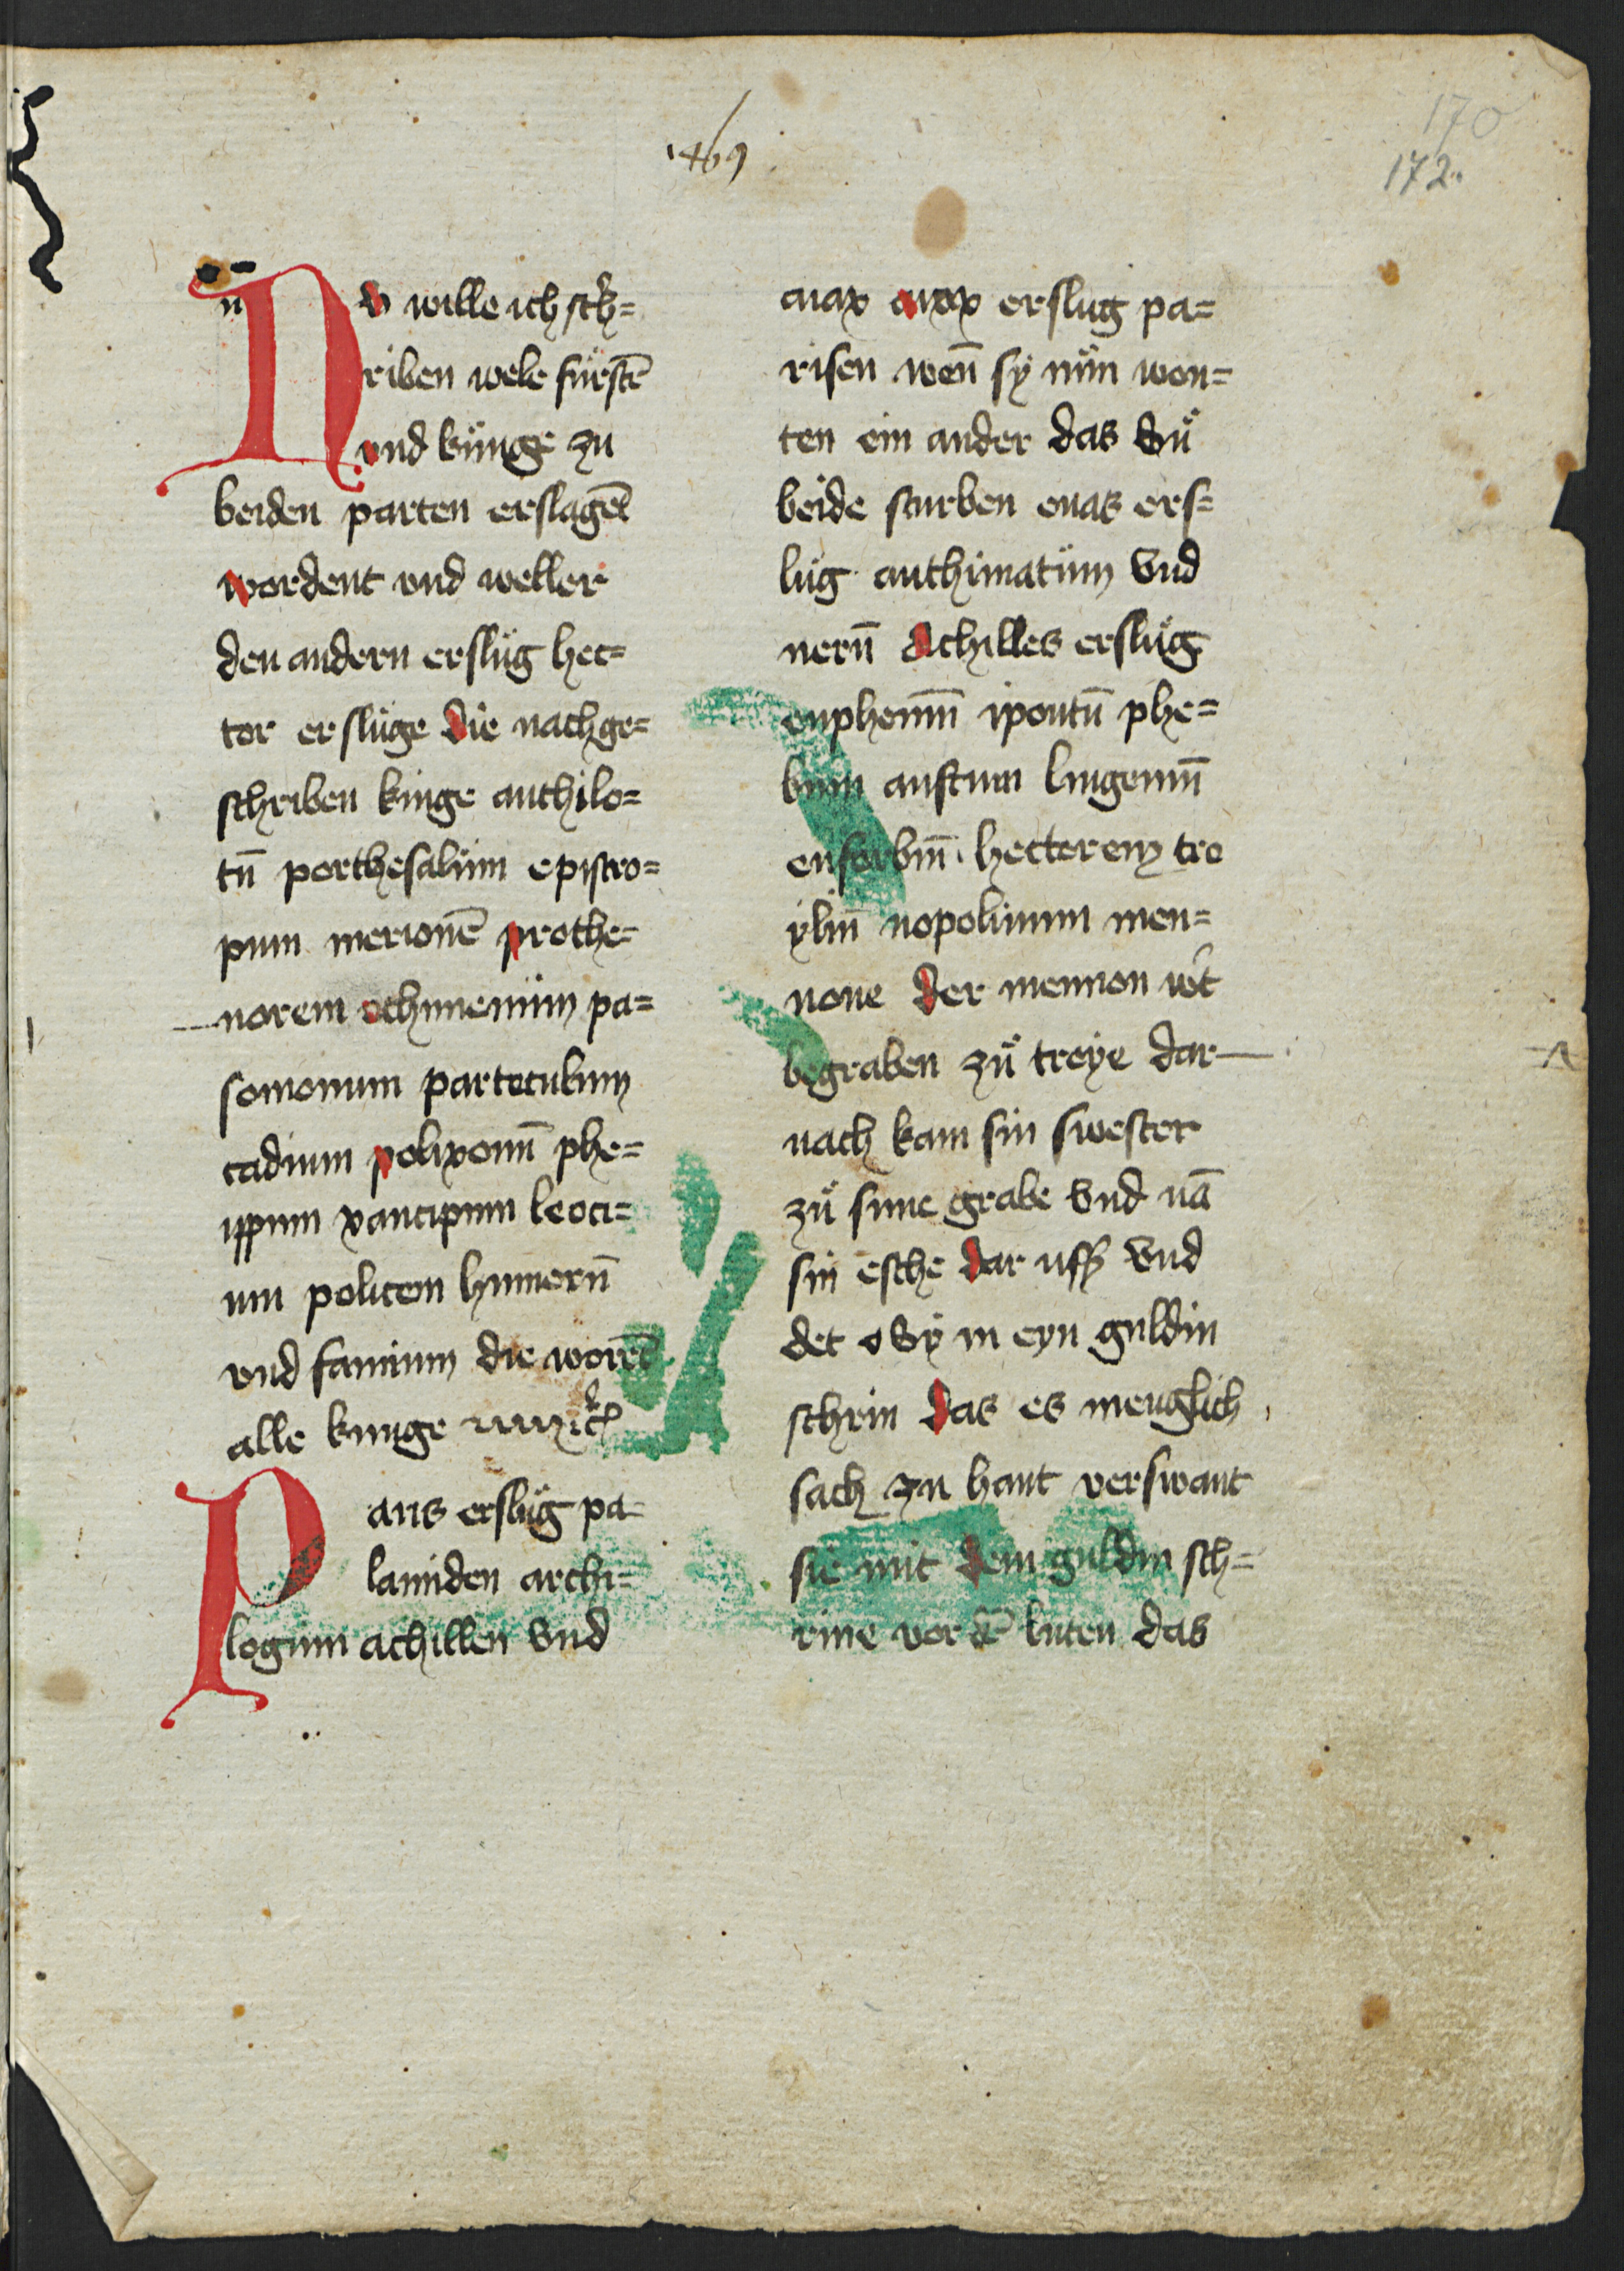 1469
170
172.
Nv wille ich sch=
riben wele fürstē
vnd künge zu
beiden parten erslagē
wordent vnd weller
den andern erslüg hec=
tor erslüge die nachge=
schriben kinge anthilo=
tū porthesalüm epistro=
pum merionē prothe=
norem ochmenüm pa=
somonum partoculum
cadium polixonū phe=
ippum xantipum leoci=
um politem hymerū
vnd famium die worē
alle kunge
Paris erslüg pa-
lamiden archi=
logum achillen vnd
aiax aiax erslug pa=
risen wen̄ sÿ nün won=
ten ein ander das sü
beide sturben eneas ers=
lüg anthimatüm vnd
nerū Achilles erslüg
euphemū ipoutū phe=
bum austum lingemū
euforbiū hectorem tro
ÿlū nopolimum men=
none der mennon wͦt
begraben zuͦ troÿe dar-
nach kam sin swester
zuͦ sime grabe vnd nā
sin esche dar uff vnd
det sÿ in eyn guldin
schrin das es menglich
sach zu hant verswant
sie mit dem guldin sch=
rine vor dē luten das